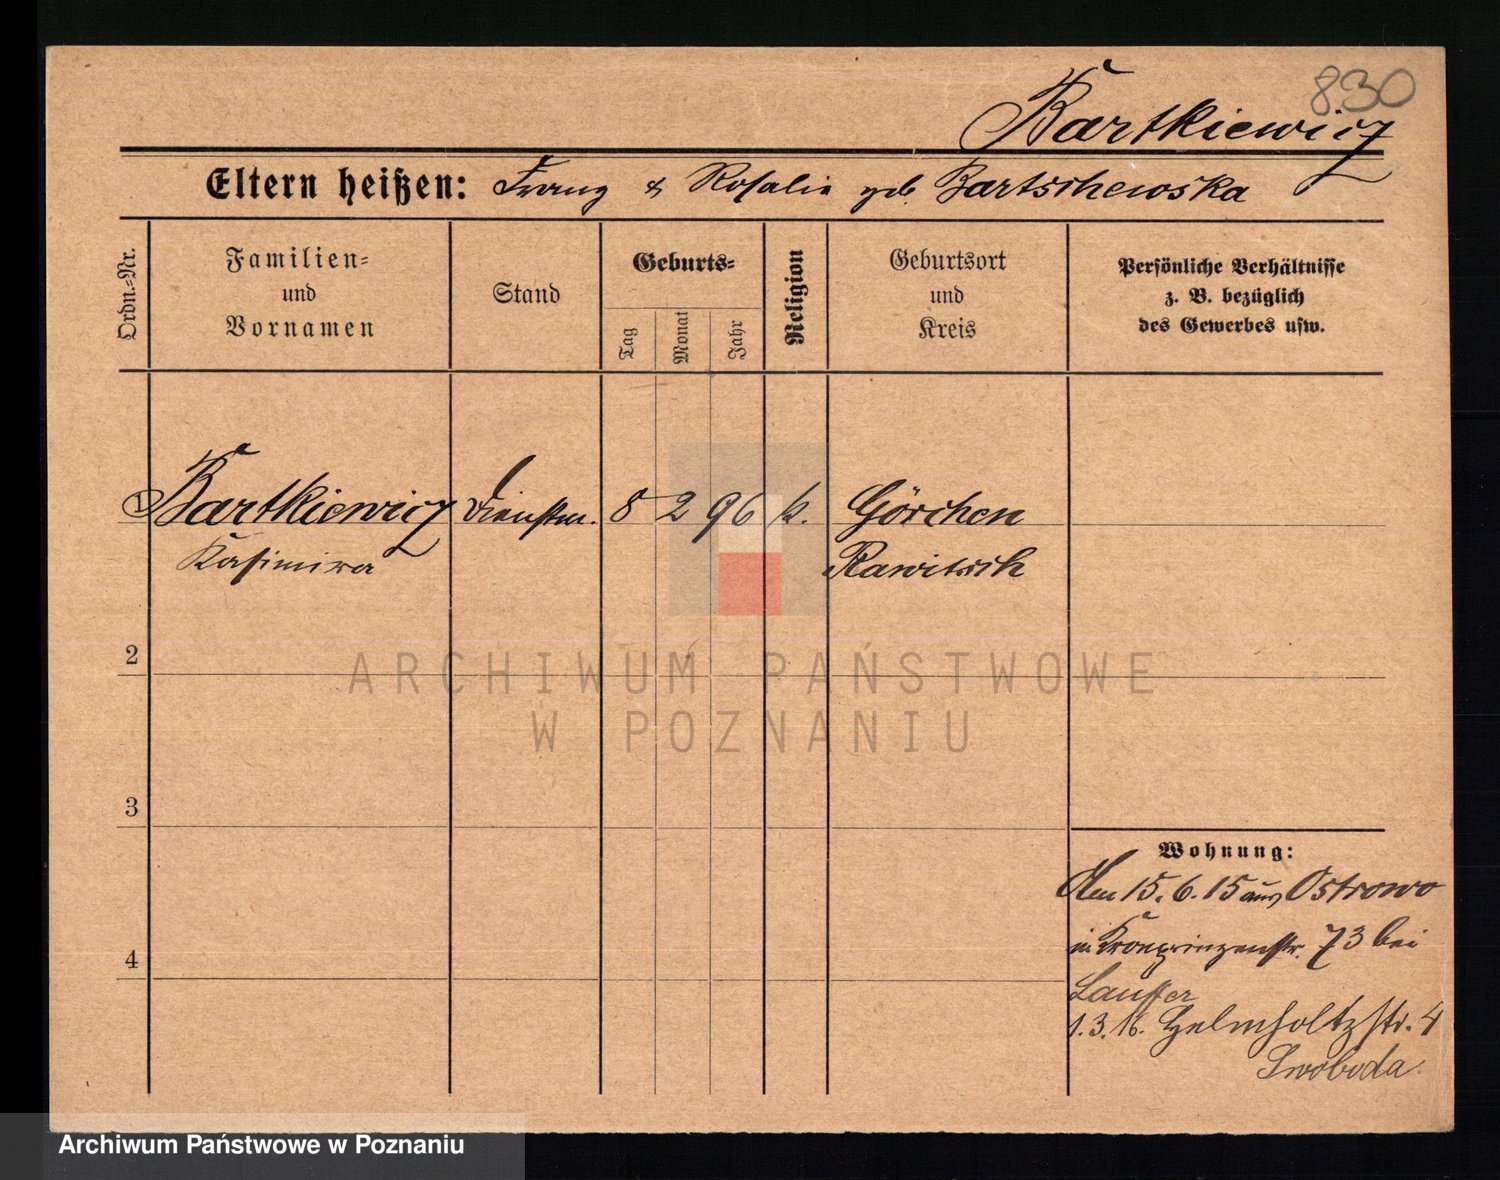 830
Bartkiewicz
Eltern heißen: Franz & Rosalie geb. Bartschewska
Ordn.-Nr.
Familien-
und
Vornamen
Stand
Geburts-
Tag
Monat
Jahr
Religion
Geburtsort
und
Kreis
Persönliche Verhältnisse
z. B. bezüglich
des Gewerbes usw.
1 Bartkiewicz Dienstm. 8 2 96 k. Görchen
Kasimira Rawitsch
2
3
4
Wohnung:
Am 15.6.15 aus Ostrowo
in Kronprinzenstr. 73 bei
Lauffer
1.3.16. Helmholtzstr. 4
Swoboda
ARCHIWUM PAŃSTWOWE
W POZNANIU
Archiwum Państwowe w Poznaniu